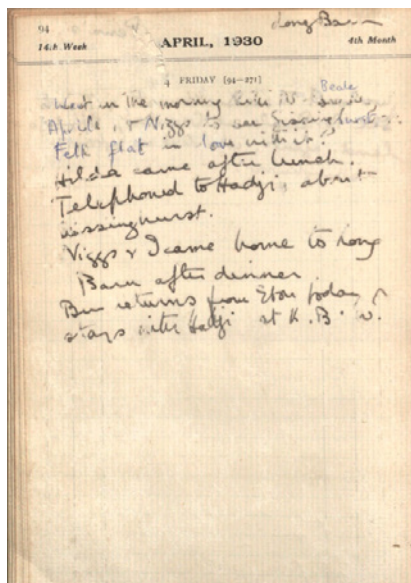 94
Long Barn
14th Week
APRIL, 1930
4th Month
4 FRIDAY [94-271]
Beale
Went in the morning with
Aprile, & Niggs to see Sissinghurst.
Fell flat in love with it.
Hilda came after lunch.
Telephoned to Hadji, about
Sissinghurst.
Niggs & I came home to Long
Barn after dinner.
Ben returns from Eton today &
stays with Hadji at K.B.W.